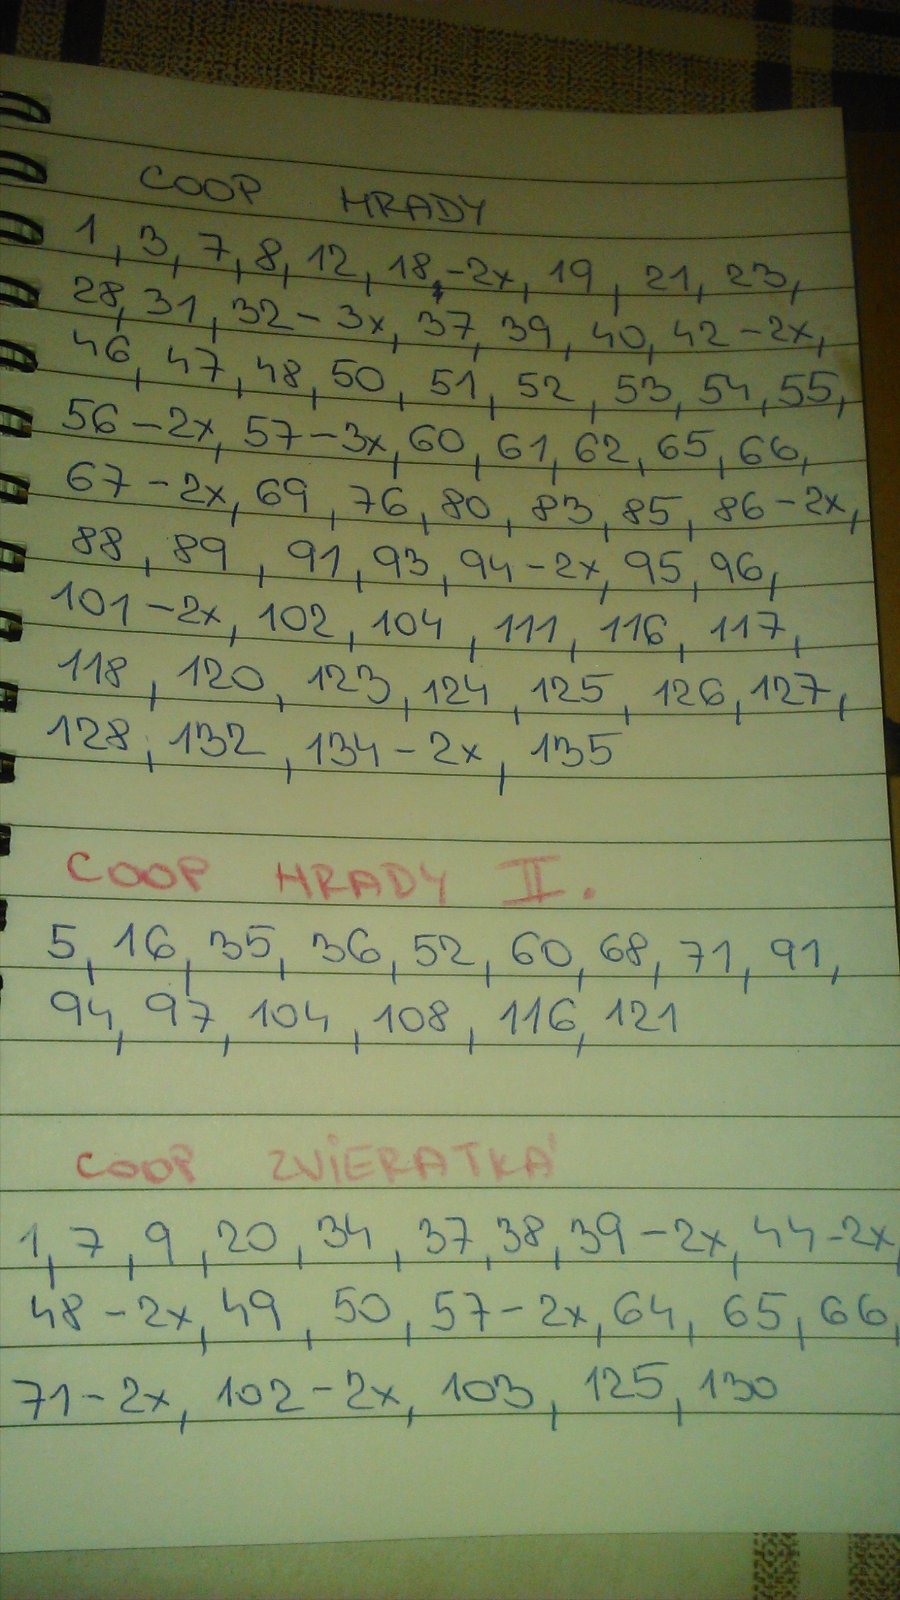 COOP HRADY
1, 3, 7, 8, 12, 18,-2x, 19, 21, 23,
28, 31, 32-3x, 37, 39, 40, 42-2x,
46, 47, 48, 50, 51, 52, 53, 54, 55,
56-2x, 57-3x, 60, 61, 62, 65, 66,
67-2x, 69, 76, 80, 83, 85, 86-2x,
88, 89, 91, 93, 94-2x, 95, 96,
101-2x, 102, 104, 111, 116, 117,
118, 120, 123, 124, 125, 126, 127,
128, 132, 134-2x, 135
COOP HRADY II.
5, 16, 35, 36, 52, 60, 68, 71, 91,
94, 97, 104, 108, 116, 121
COOP ZVIERATKÁ
1, 7, 9, 20, 34, 37, 38, 39-2x, 44-2x,
48-2x, 49, 50, 57-2x, 64, 65, 66,
71-2x, 102-2x, 103, 125, 130